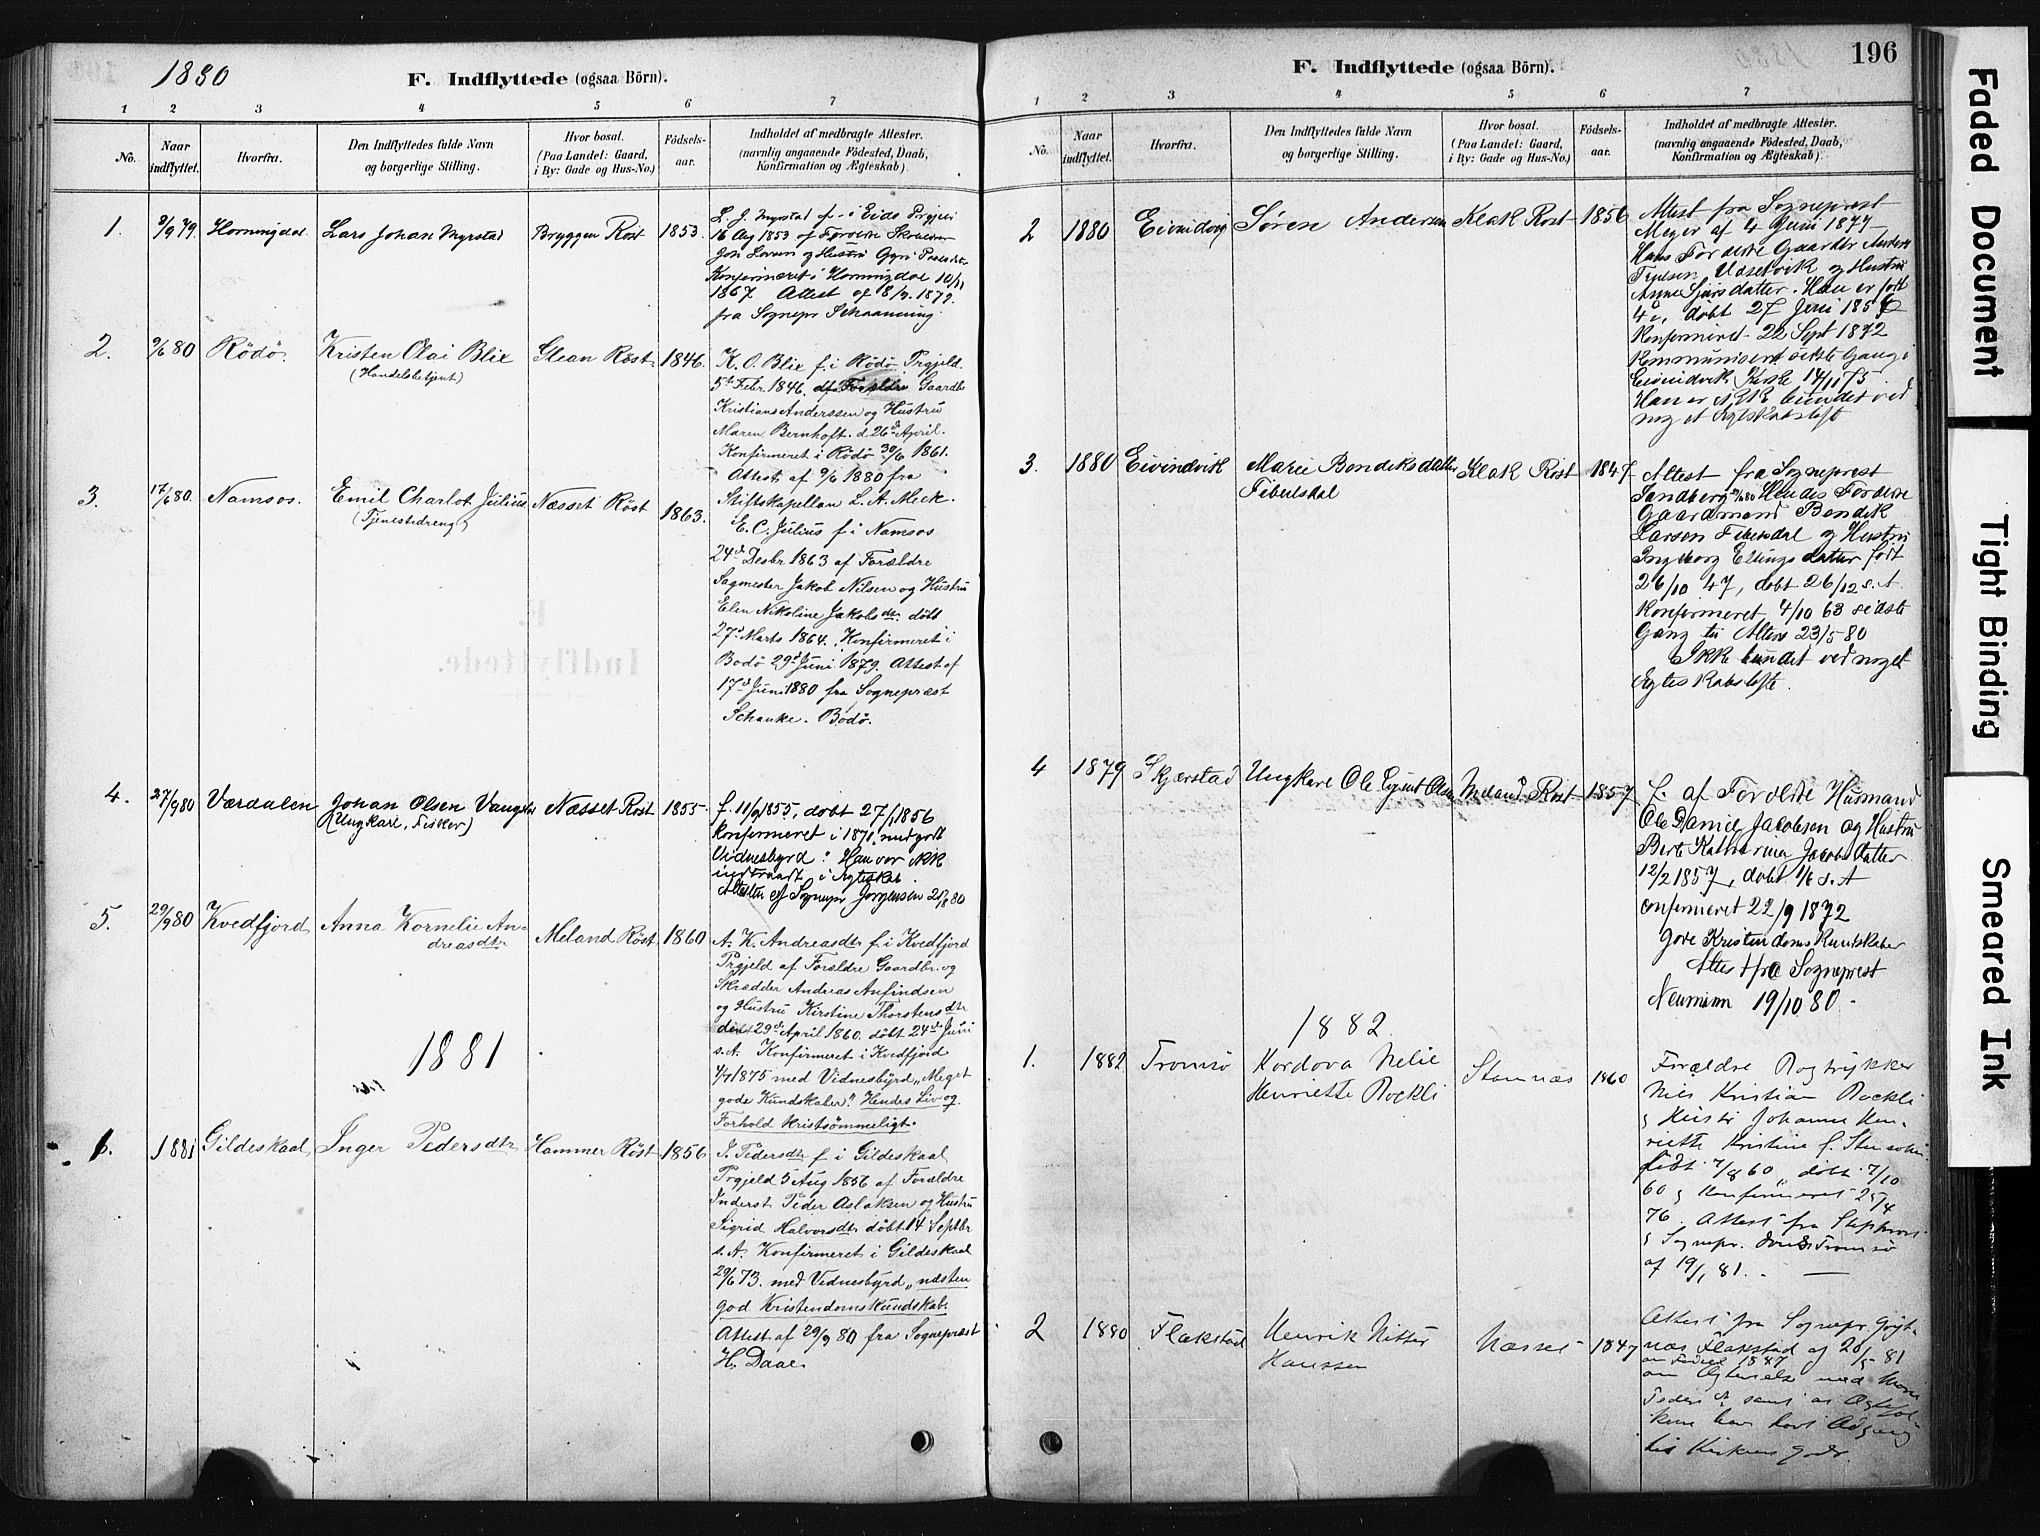 1880
F. Indflyttede (ogsaa Börn).
1 2 3 4 5 6 7
No.
Naar indflyttet.
Hvorfra.
Den Indflyttedes fulde Navn
og borgerlige Stilling.
Hvor bosat.
(Paa Landet: Gaard,
i By: Gade og Hus-No.)
Födsels-
aar.
Indholdet af medbragte Attester.
(navnlig angaaende Födested, Daab,
Konfirmation og Ægteskab).
1. 9/9 79 Horningdal Lars Johan Myrstad Bryggen Röst 1853.
L. J. Myrstad f. i Eids Prgjeld
16 Aug 1853 af Forældre
Konfirmeret i Horningdal
1867. Attest af 8/9 1879.
fra Sognepr Schaanning.
2. 9/6 80 Rödö. Kristen Olai Blix Glean Röst 1846.
(Handelsbetjent)
K. O. Blix f. i Rödö Prgjeld
5te Febr. 1846. af Forældre Gaardbr.
Kristians Anderssen og Hustru
Maren Bernhoft. d. 26de April.
Konfirmeret i Rödö 30/6 1861.
Attest af 9/6 1880 fra
Stiftskapellan L. A. Meck.
3. 17/6 80. Namsos. Emil Charlot Julius Næsset Röst 1863.
(Tjenestedreng)
E. C. Julius f. i Namsos
24de Desbr 1863 af Forældre
Sagmester Jakob Nilsen og Hustru
Elen Nikoline Jakobsdtr. döbt
27de Marts 1864. Konfirmeret i
Bodö 29de Juni 1879. Attest af
17de Juni 1880 fra Sognepræst
Schanke. Bodö.
4. 27/9 80 Værdalen Johan Olsen Næsset Röst 1855
(Ungkarl, Fisker)
f. 11/9 1855, döbt 27/1 1856
Konfirmeret i 1871, med godt
Vidnesbyrd: Han var ikke
indtraadt i Ægteskab.
Attesten af Sognepr Jörgensen 21/8 80
5. 29/9 80 Kvedfjord Anna Kornelie An-
dreasdtr Meland Röst 1860
A. K. Andreasdtr f. i Kvedfjord
Prgjeld af Forældre Gaardbr. og
Skrædder Andreas Anfindsen
og Hustru Kirstine Thorstensdtr
den 29de April 1860. döbt 24de Juni
s. A. Konfirmeret i Kvedfjord
4/7 1875 med Vidnesbyrd „Meget
gode Kundskaber." Hendes Liv og
Forhold Kristsömmeligt.
1881
1. 1881 Gildeskaal Inger Pedersdtr Hammer Röst 1856
I. Pedersdtr f. i Gildeskaal
Prgjeld 5 Aug 1856 af Forældre
Inderst Peder Aslaksen og Hustru
Sigrid Halvorsdtr döbt 14 Septbr
s. A. Konfirmeret i Gildeskaal
29/6 73. med Vidnesbyrd „næsten
god Kristendomskundskab.
Attest af 29/9 80 fra Sognepræst
H. Daae.
196
F. Indflyttede (ogsaa Börn).
1 2 3 4 5 6 7
No.
Naar indflyttet.
Hvorfra.
Den Indflyttedes fulde Navn
og borgerlige Stilling.
Hvor bosat.
(Paa Landet: Gaard,
i By: Gade og Hus-No.)
Födsels-
aar.
Indholdet af medbragte Attester.
(navnlig angaaende Födested, Daab,
Konfirmation og Ægteskab).
2 1880 Eivindvig Søren Andersen Klak Röst 1856
Attest fra Sogneprest
Meyer af 4 Juni 1877
Hans Forældre Gaardbr Anders
og Hustru
Anne Sjursdatter. Han er født
döbt 27 Juni 1856
Konfirmeret 22 Sept 1872
Kommuniseret sidste Gang i
Eivindvik Kirke 14/11 75.
Han er ikke bundet ved
noget Ægteskabsløfte
3. 1880 Eivindvik Marie Bendiksdatter Klak Röst 1847
Attest fra Sogneprest
Sandberg Hendes Forældre
Gaardmand Bendik
Larsen og Hustru
Ingeborg Ellingsdatter født
26/10 47, døbt 26/12 s. A.
Konfirmeret 4/10 63 sidste
Gang til Alters 23/5 80
Ikke bundet ved noget
Ægteskabsløfte.
4 1879 Skjerstad Ungkarl Ole Meland Röst 1857
f. af Forældre Husmand
Ole Daniel Jacobsen og Hustru
Berit Katharina Jacobsdatter
12/2 1857, døbt 1/6 s. A
Konfirmeret 22/9 1872
Gode Kristendoms Kundskaber
Attest fra Sogneprest
Neumann 19/10 80.
1882
1. 1882 Tromsö Kordova Nelie
Henriette Rockli Stavnæs 1860
Forældre Bogtrykker
Nils Kristian Rockli
og Hustru Johanne Hen-
riette Kristine f.
född 7/8 60, döbt 7/10
60 og Konfirmeret 25/4
76. Attest fra
Sognepr. Tromsö
af 19/1 81.
2 1880 Flakstad Henrik Nitter
Hanssen Næsset 1847
Attest fra Sognepr
Flakstad af 20/5 81
om Födsel 1847
om Ægtevielse med
samt at
har havt Adgang
til Kirkens goder.
Faded Document
Tight Binding
Smeared Ink